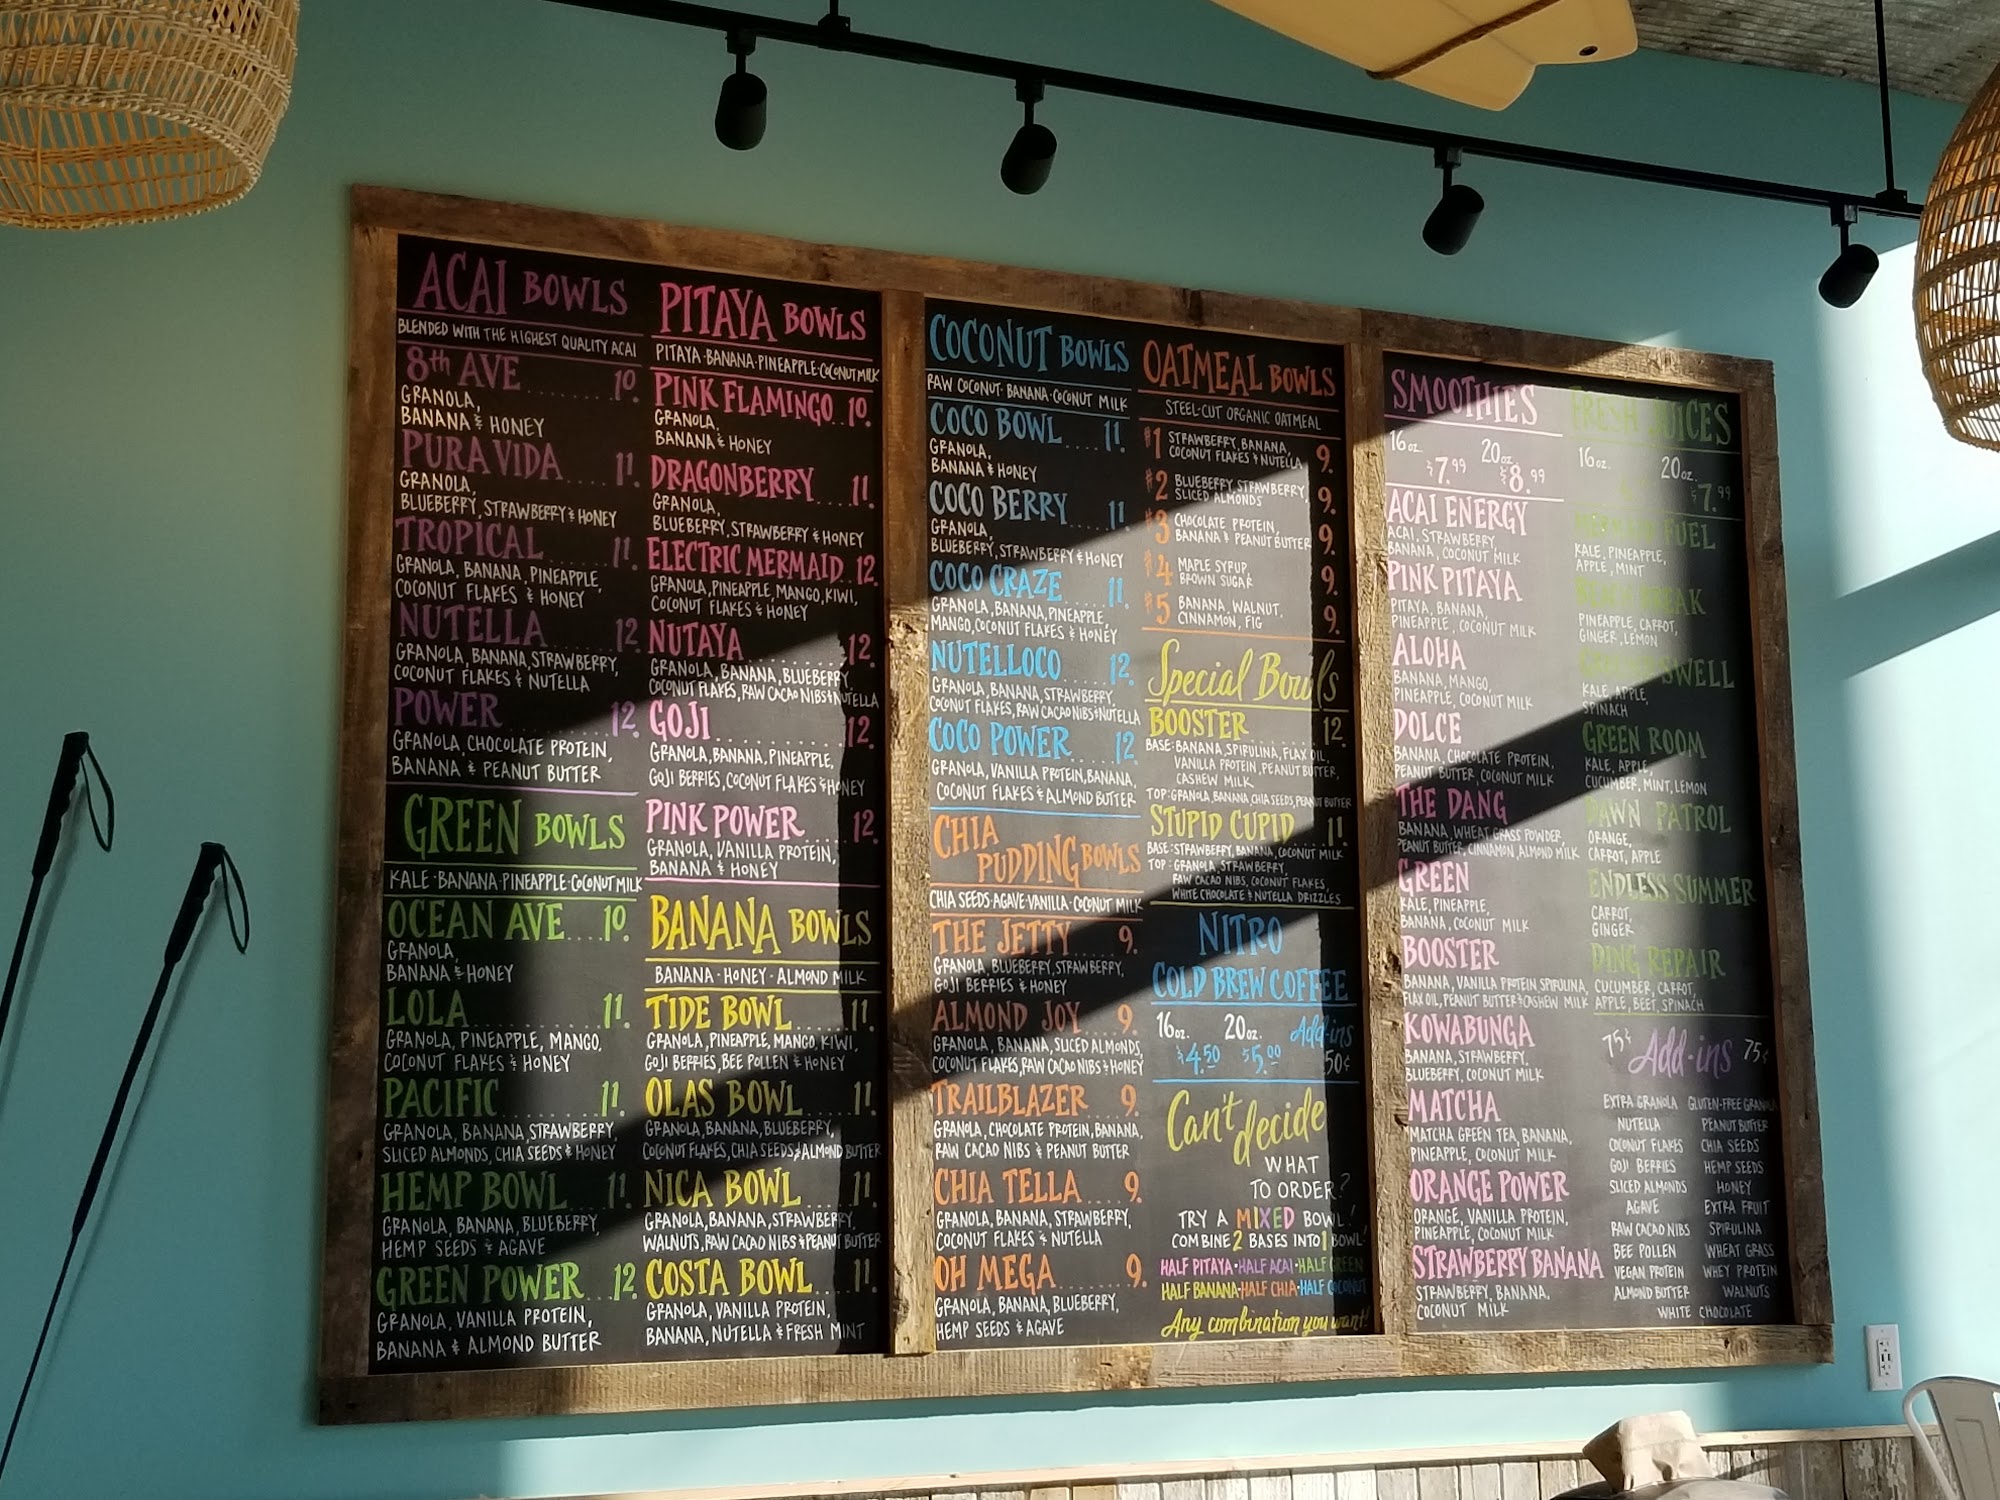 ACAI BOWLS
BLENDED WITH THE HIGHEST QUALITY ACAI
8th AVE ........ 10.
GRANOLA,
BANANA & HONEY
PURA VIDA ..... 11.
GRANOLA,
BLUEBERRY, STRAWBERRY & HONEY
TROPICAL ...... 11.
GRANOLA, BANANA, PINEAPPLE,
COCONUT FLAKES & HONEY
NUTELLA ....... 12.
GRANOLA, BANANA, STRAWBERRY,
COCONUT FLAKES & NUTELLA
POWER ......... 12.
GRANOLA, CHOCOLATE PROTEIN,
BANANA & PEANUT BUTTER
GREEN BOWLS
KALE · BANANA · PINEAPPLE · COCONUT MILK
OCEAN AVE .... 10.
GRANOLA,
BANANA & HONEY
LOLA ............ 11.
GRANOLA, PINEAPPLE, MANGO,
COCONUT FLAKES & HONEY
PACIFIC ......... 11.
GRANOLA, BANANA, STRAWBERRY,
SLICED ALMONDS, CHIA SEEDS & HONEY
HEMP BOWL .... 11.
GRANOLA, BANANA, BLUEBERRY,
HEMP SEEDS & AGAVE
GREEN POWER ... 12.
GRANOLA, VANILLA PROTEIN,
BANANA & ALMOND BUTTER
PITAYA BOWLS
PITAYA · BANANA · PINEAPPLE · COCONUT MILK
PINK FLAMINGO 10.
GRANOLA,
BANANA & HONEY
DRAGONBERRY ... 11.
GRANOLA,
BLUEBERRY, STRAWBERRY & HONEY
ELECTRIC MERMAID .. 12.
GRANOLA, PINEAPPLE, MANGO, KIWI,
COCONUT FLAKES & HONEY
NUTAYA ......... 12.
GRANOLA, BANANA, BLUEBERRY,
COCONUT FLAKES, RAW CACAO NIBS & NUTELLA
GOJI ............ 12.
GRANOLA, BANANA, PINEAPPLE,
GOJI BERRIES, COCONUT FLAKES & HONEY
PINK POWER .... 12.
GRANOLA, VANILLA PROTEIN,
BANANA & HONEY
BANANA BOWLS
BANANA · HONEY · ALMOND MILK
TIDE BOWL ..... 11.
GRANOLA, PINEAPPLE, MANGO, KIWI,
GOJI BERRIES, BEE POLLEN & HONEY
OLAS BOWL ..... 11.
GRANOLA, BANANA, BLUEBERRY,
COCONUT FLAKES, CHIA SEEDS & ALMOND BUTTER
NICA BOWL ..... 11.
GRANOLA, BANANA, STRAWBERRY,
WALNUTS, RAW CACAO NIBS & PEANUT BUTTER
COSTA BOWL .... 11.
GRANOLA, VANILLA PROTEIN,
BANANA, NUTELLA & FRESH MINT
COCONUT BOWLS
RAW COCONUT · BANANA · COCONUT MILK
COCO BOWL .... 11.
GRANOLA,
BANANA & HONEY
COCO BERRY .... 11.
GRANOLA,
BLUEBERRY, STRAWBERRY & HONEY
COCO CRAZE .... 11.
GRANOLA, BANANA, PINEAPPLE,
MANGO, COCONUT FLAKES & HONEY
NUTELLOCO ..... 12.
GRANOLA, BANANA, STRAWBERRY,
COCONUT FLAKES, RAW CACAO NIBS & NUTELLA
COCO POWER .... 12.
GRANOLA, VANILLA PROTEIN, BANANA,
COCONUT FLAKES & ALMOND BUTTER
CHIA
PUDDING BOWLS
CHIA SEEDS · AGAVE · VANILLA · COCONUT MILK
THE JETTY .... 9.
GRANOLA, BLUEBERRY, STRAWBERRY,
GOJI BERRIES & HONEY
ALMOND JOY ... 9.
GRANOLA, BANANA, SLICED ALMONDS,
COCONUT FLAKES, RAW CACAO NIBS & HONEY
TRAILBLAZER ... 9.
GRANOLA, CHOCOLATE PROTEIN, BANANA,
RAW CACAO NIBS & PEANUT BUTTER
CHIA TELLA .... 9.
GRANOLA, BANANA, STRAWBERRY,
COCONUT FLAKES & NUTELLA
OH MEGA ....... 9.
GRANOLA, BANANA, BLUEBERRY,
HEMP SEEDS & AGAVE
OATMEAL BOWLS
STEEL-CUT ORGANIC OATMEAL
#1 STRAWBERRY, BANANA,
COCONUT FLAKES & NUTELLA 9.
#2 BLUEBERRY, STRAWBERRY,
SLICED ALMONDS 9.
#3 CHOCOLATE PROTEIN,
BANANA & PEANUT BUTTER 9.
#4 MAPLE SYRUP,
BROWN SUGAR 9.
#5 BANANA, WALNUT,
CINNAMON, FIG 9.
Special Bowls
BOOSTER ....... 12.
BASE: BANANA, SPIRULINA, FLAX OIL,
VANILLA PROTEIN, PEANUT BUTTER,
CASHEW MILK
TOP: GRANOLA, BANANA, CHIA SEEDS, PEANUT BUTTER
STUPID CUPID ... 11.
BASE: STRAWBERRY, BANANA, COCONUT MILK
TOP: GRANOLA, STRAWBERRY,
RAW CACAO NIBS, COCONUT FLAKES,
WHITE CHOCOLATE & NUTELLA DRIZZLES
NITRO
COLD BREW COFFEE
16oz. 20oz. Add-ins
$4.50 $5.00 50¢
Can't decide
WHAT
TO ORDER?
TRY A MIXED BOWL!
COMBINE 2 BASES INTO 1 BOWL!
HALF PITAYA · HALF ACAI · HALF GREEN
HALF BANANA · HALF CHIA · HALF COCONUT
Any combination you want!
SMOOTHIES
16oz. 20oz.
$7.99 $8.99
ACAI ENERGY
ACAI, STRAWBERRY,
BANANA, COCONUT MILK
PINK PITAYA
PITAYA, BANANA,
PINEAPPLE, COCONUT MILK
ALOHA
BANANA, MANGO,
PINEAPPLE, COCONUT MILK
DOLCE
BANANA, CHOCOLATE PROTEIN,
PEANUT BUTTER, COCONUT MILK
THE DANG
BANANA, WHEAT GRASS POWDER,
PEANUT BUTTER, CINNAMON, ALMOND MILK
GREEN
KALE, PINEAPPLE,
BANANA, COCONUT MILK
BOOSTER
BANANA, VANILLA PROTEIN SPIRULINA,
FLAX OIL, PEANUT BUTTER & CASHEW MILK
KOWABUNGA
BANANA, STRAWBERRY,
BLUEBERRY, COCONUT MILK
MATCHA
MATCHA GREEN TEA, BANANA,
PINEAPPLE, COCONUT MILK
ORANGE POWER
ORANGE, VANILLA PROTEIN,
PINEAPPLE, COCONUT MILK
STRAWBERRY BANANA
STRAWBERRY, BANANA,
COCONUT MILK
FRESH JUICES
16oz. 20oz.
$7.99
FUEL
KALE, PINEAPPLE,
APPLE, MINT
BREAK
PINEAPPLE, CARROT,
GINGER, LEMON
SWELL
KALE, APPLE,
SPINACH
GREEN ROOM
KALE, APPLE,
CUCUMBER, MINT, LEMON
DAWN PATROL
ORANGE,
CARROT, APPLE
ENDLESS SUMMER
CARROT,
GINGER
DING REPAIR
CUCUMBER, CARROT,
APPLE, BEET, SPINACH
75¢ Add-ins 75¢
EXTRA GRANOLA GLUTEN-FREE GRANOLA
NUTELLA PEANUT BUTTER
COCONUT FLAKES CHIA SEEDS
GOJI BERRIES HEMP SEEDS
SLICED ALMONDS HONEY
AGAVE EXTRA FRUIT
RAW CACAO NIBS SPIRULINA
BEE POLLEN WHEAT GRASS
VEGAN PROTEIN WHEY PROTEIN
ALMOND BUTTER WALNUTS
WHITE CHOCOLATE